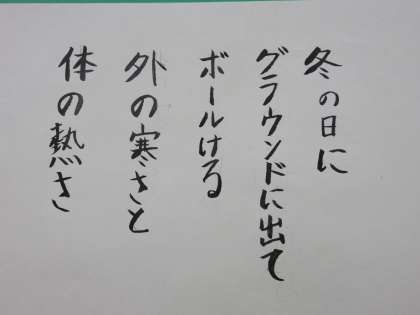 冬の日に
グラウンドに出て
ボールける
外の寒さと
体の熱さ